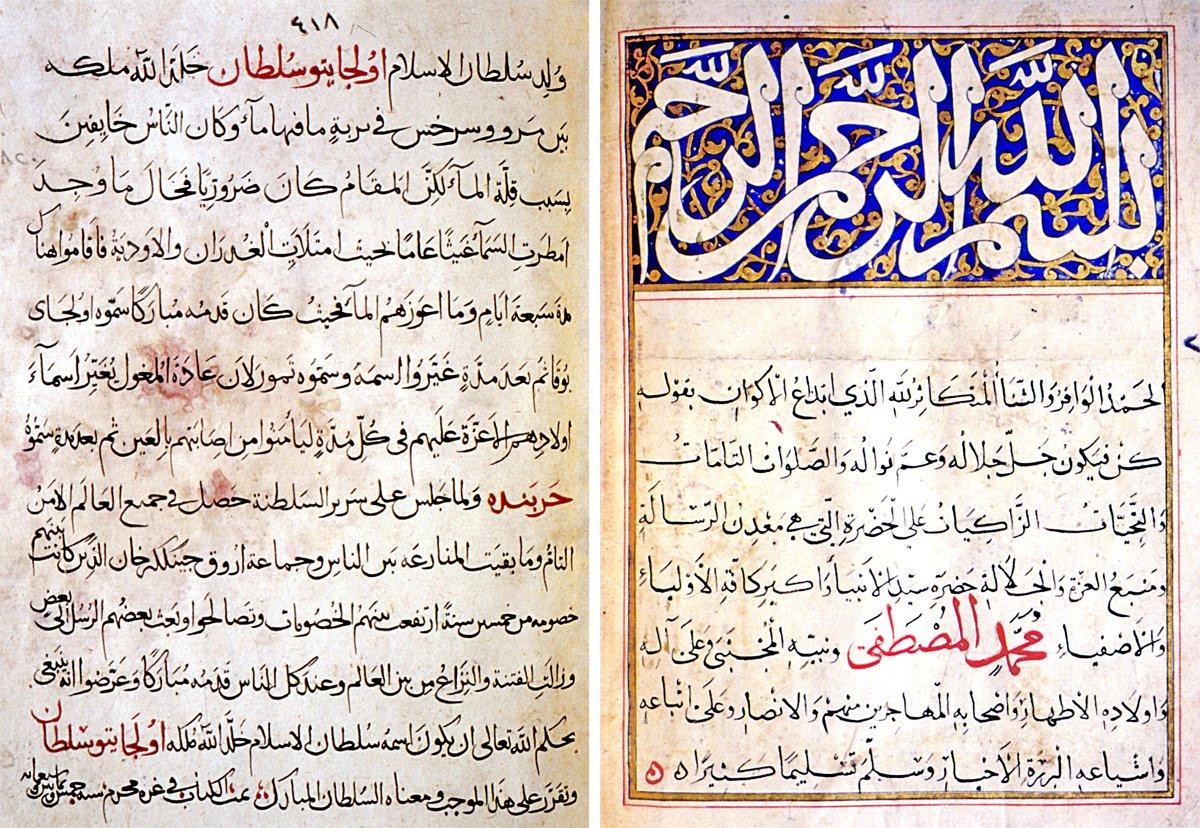 بسم الله الرحمن الرحيم
الحمد الوافر والثناء المتكاثر لله الذي ابداع الاكوان بقوله
كن فيكون جل جلاله وعم نواله والصلوات التامات
والتحيات الزاكيات على الحضرة التي هي معدن الرسالة
ومنبع العزة والجلالة حضرة سيد الانبياء واكبر كافة الاولياء
والاصفياء محمد المصطفى ونبيه المجتبى وعلى آله
واولاده الاطهار واصحابه المهاجرين منهم والانصار وعلى اتباعه
واشياعه البررة الاخيار وسلم تسليما كثيرا ه ه
٤١٨
ولد سلطان الاسلام اولجايتو سلطان خلد الله ملكه
بين مرو وسرخس في برية ما فيها ماء وكان الناس خايفين
بسبب قلة الماء لكن المقام كان ضروريا فحال ما وجد
امطرت السماء غيثا عاما بحيث امتلات الغدران والاودية فاقاموا هناك
مدة سبعة ايام وما اعوزهم الماء فحيث كان قدمه مباركا سموه اولجاى
بوقا ثم بعد مدة غيروا اسمه وسموه تمودر لان عادة المغول يغير اسماء
اولادهم الاعزة عليهم في كل مدة ليامنوا من اصابتهم بالعين ثم بعد مدة سموه
خربنده ولما جلس على سرير السلطنة حصل في جميع العالم الامن
التام وما بقيت المنازعه بين الناس وجماعة اروق جينككز خان الذين كانت بينهم
خصومه من خمسين سنة ارتفعت بينهم الخصومات وتصالحوا وبعث بعضهم الرسل الى بعض
وزالت الفتنة والنزاع من بين العالم وعند كل الناس قدمه مباركا وعرضوا انه ينبغى
بحكم الله تعالى ان يكون اسمه سلطان الاسلام خلد الله ملكه اولجايتو سلطان
وتقرر على هذا الموجب ومعناه السلطان المبارك تمت الكتاب في غره محرم سنه